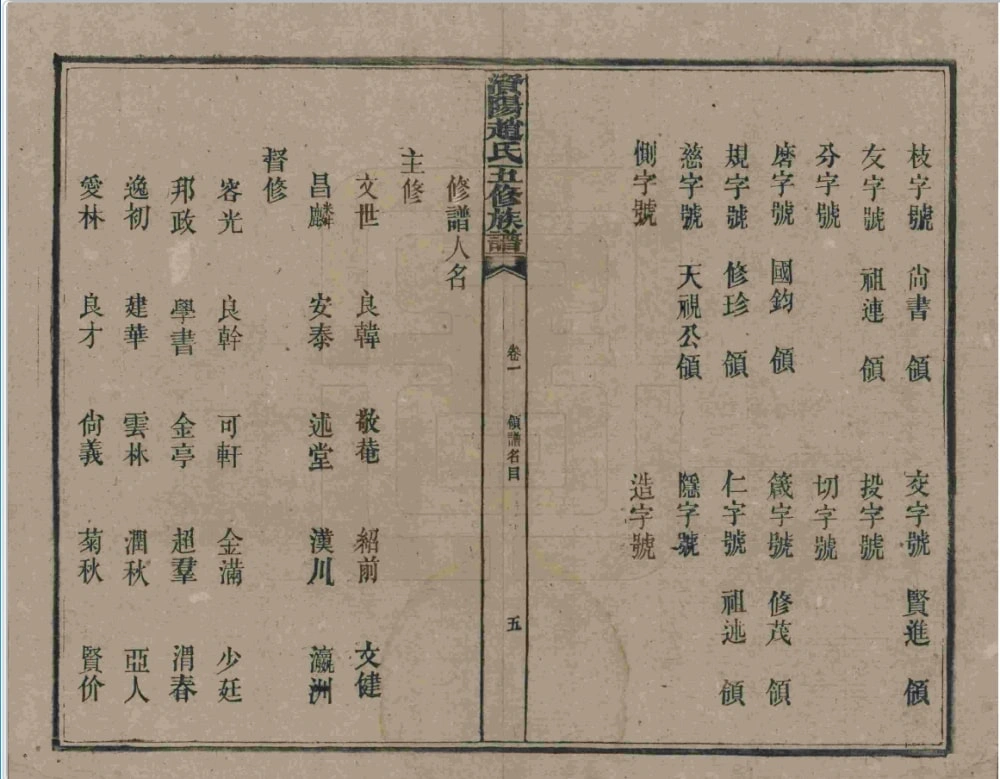 枝字號 尙書 領 交字號 賢進 領
友字號 祖連 領 投字號
分字號 切字號
磨字號 國鈞 領 箴字號 修茂 領
規字號 修珍 領 仁字號 祖述 領
慈字號 天視公領 隱字號
惻字號 造字號
資陽趙氏五修族譜 卷一 領譜名目 五
修譜人名
主修
文世 良韓 敬菴 紹前 文健
昌麟 安泰 述堂 漢川 瀛洲
督修
容光 良幹 可軒 金滿 少廷
邦政 學書 金亭 超羣 渭春
逸初 建華 雲林 潤秋 亞人
愛林 良才 尙義 菊秋 賢价